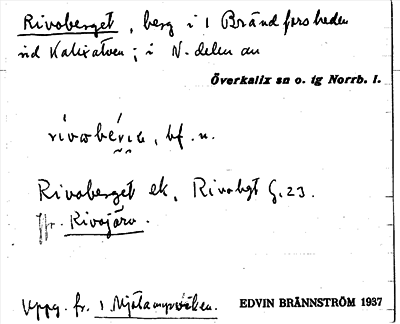 Rivoberget, berg i 1 Brändforsheden
vid Kalixälven; i N. delen av
Överkalix sn o. tg Norrb. l.
bf. n.
Rivoberget ek, Rivobgt G.23.
Jfr. Rivojärv.
Uppg. fr. 1
EDVIN BRÄNNSTRÖM 1937